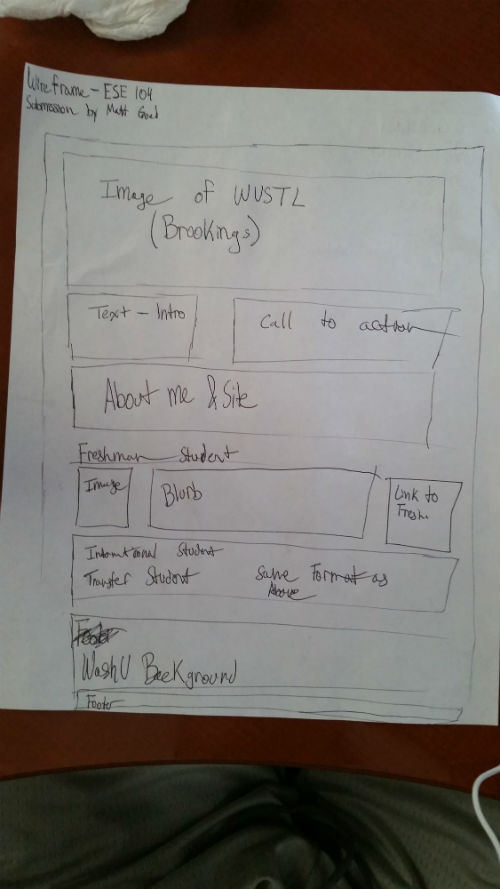 Wireframe - ESE 104
Submission by Matt
Image of WUSTL
(Brookings)
Text - Intro
Call to action
About me & Site
Freshman Student
Image
Blurb
Link to
Fresh.
International Student
Transfer Student
Same Format as
Above
Footer
WashU Background
Footer